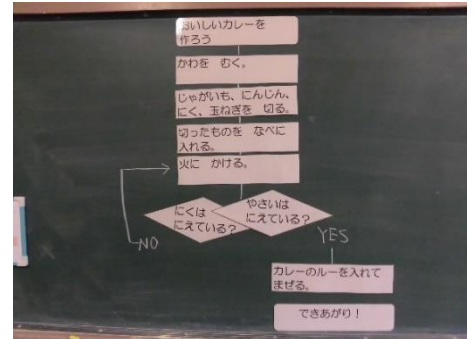 おいしいカレーを
作ろう
かわを むく。
じゃがいも、にんじん、
にく、玉ねぎを 切る。
切ったものを なべに
入れる。
火に かける。
にくは
にえている?
やさいは
にえている?
NO
YES
カレーのルーを入れて
まぜる。
できあがり!